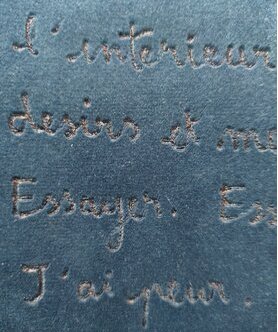 l'interieur
desirs et me
Essayer. Ess
J'ai peur.